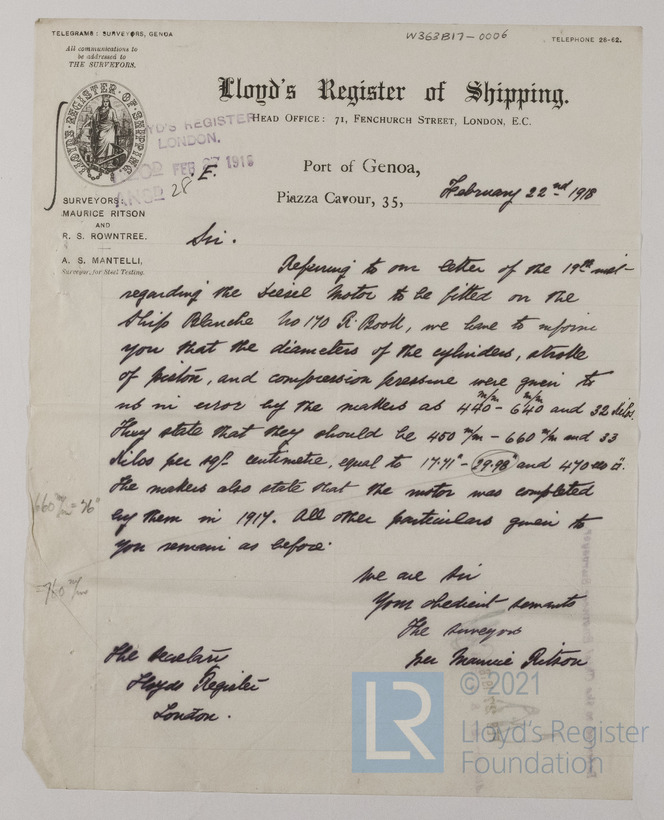 TELEGRAMS: SURVEYORS, GENOA
W363B17-0006
TELEPHONE 26-62.
All communications to
be addressed to
THE SURVEYORS.
Lloyd's Register of Shipping.
HEAD OFFICE: 71, FENCHURCH STREET, LONDON, E.C.
LLOYD'S REGISTER OF SHIPPING
LLOYD'S REGISTER
LONDON.
FEB 27 1918
ANSD 28
E.
Port of Genoa,
Piazza Cavour, 35, February 22nd 1918
SURVEYORS
MAURICE RITSON
AND
R. S. ROWNTREE.
A. S. MANTELLI,
Surveyor, for Steel Testing.
Sir.
Referring to our letter of the 19th inst-
regarding the Diesel Motor to be fitted on the
Ship Blanche No 170 R. Book, we have to inform
you that the diameters of the cylinders, stroke
of piston, and compression pressure were given to
us in error by the makers as 440 m/m - 640 m/m and 32 Kilos.
They state that they should be 450 m/m - 660 m/m and 33
Kilos per sqr. centimetre, equal to 17.71" - 29.98" and 470
The makers also state that the motor was completed
by them in 1917. All other particulars given to
you remain as before.
660 m/m = 26"
= 760 m/m
We are Sir
Your obedient servants
The Surveyors
per Maurice Ritson
The Secretary
Lloyds Register
London.
LR
© 2021
Lloyd's Register
Foundation